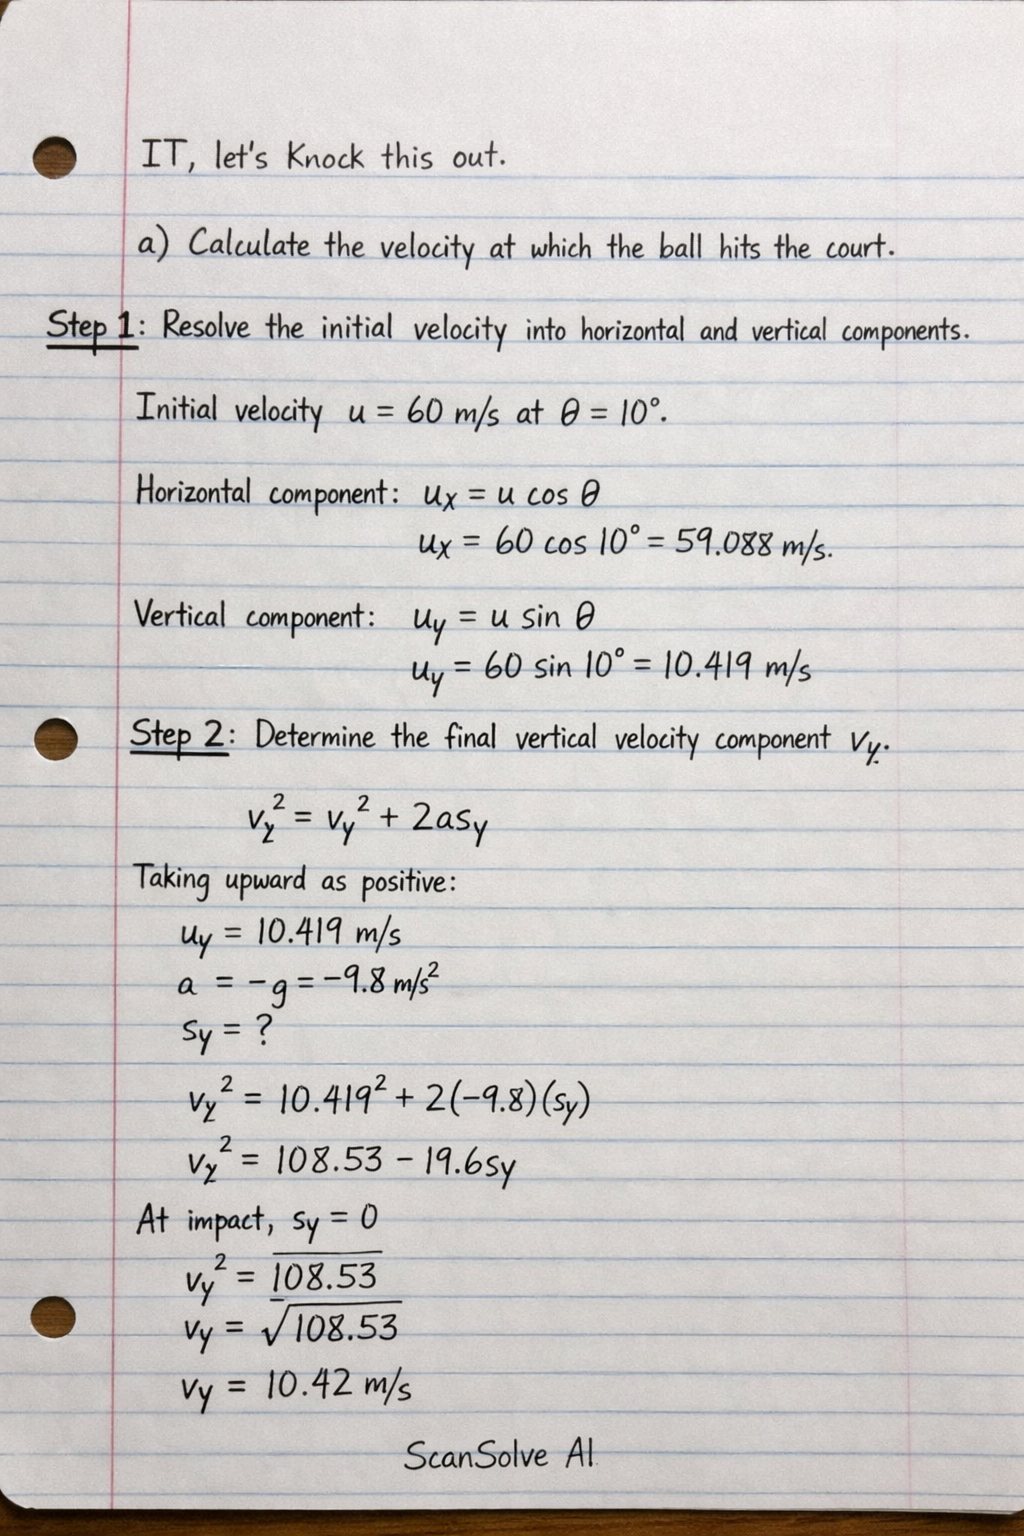 IT, let's Knock this out.
a) Calculate the velocity at which the ball hits the court.
Step 1: Resolve the initial velocity into horizontal and vertical components.
Initial velocity u = 60 m/s at θ = 10°.
Horizontal component: uₓ = u cos θ
uₓ = 60 cos 10° = 59.088 m/s.
Vertical component: u_y = u sin θ
u_y = 60 sin 10° = 10.419 m/s
Step 2: Determine the final vertical velocity component v_y.
v_y² = v_y² + 2as_y
Taking upward as positive:
u_y = 10.419 m/s
a = -g = -9.8 m/s²
s_y = ?
v_y² = 10.419² + 2(-9.8)(s_y)
v_y² = 108.53 - 19.6s_y
At impact, s_y = 0
v_y² = 108.53
v_y = √108.53
v_y = 10.42 m/s
ScanSolve AI